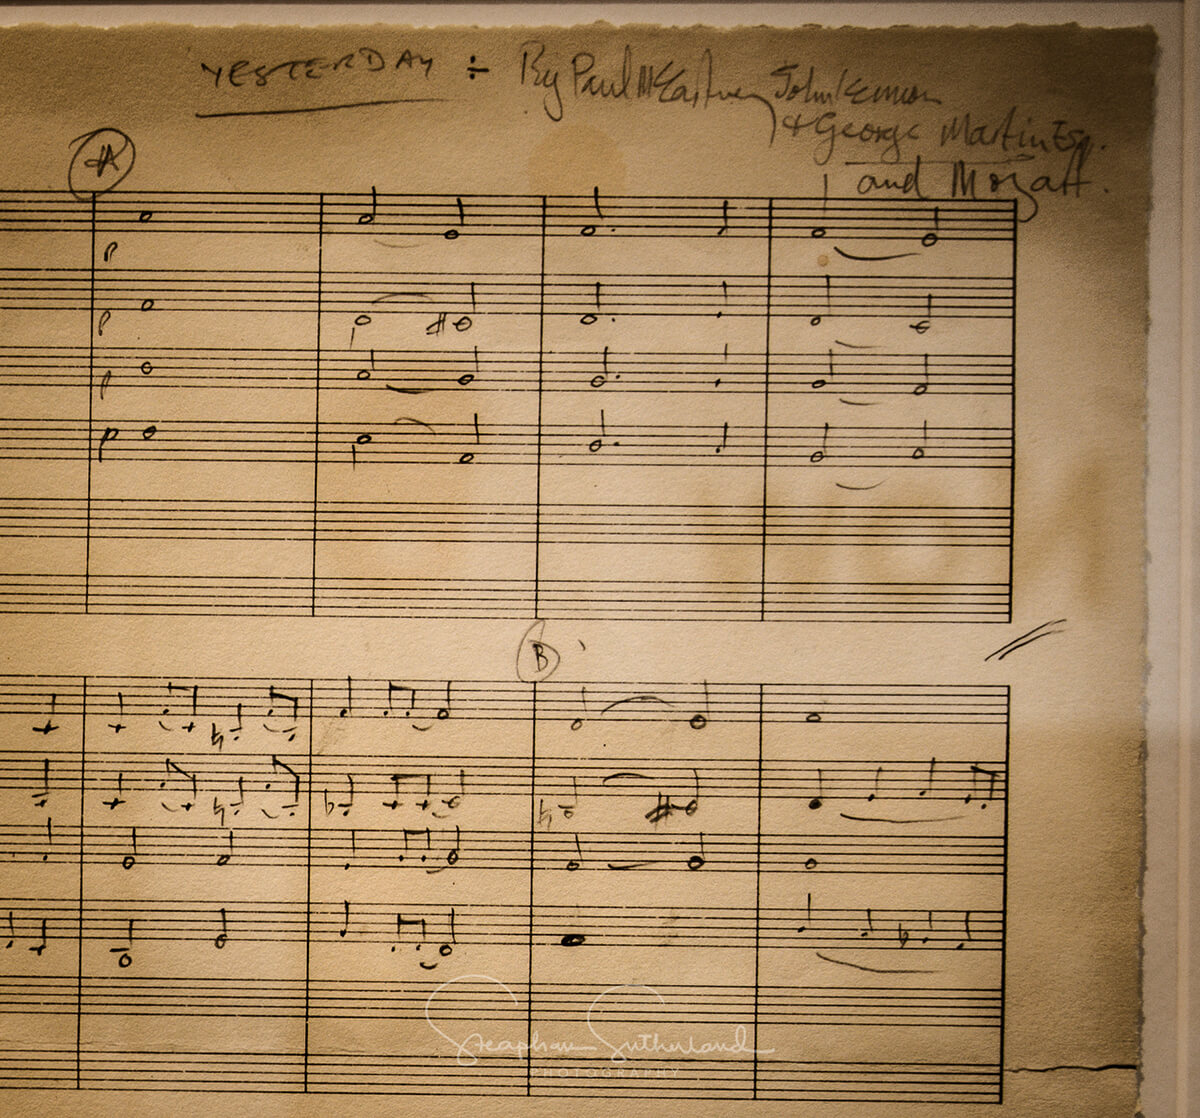 YESTERDAY ÷ By Paul McCartney John Lennon
& George Martin Esq.
and Mozart.
A
p
p
p
p
B
Steaphan Sutherland
PHOTOGRAPHY